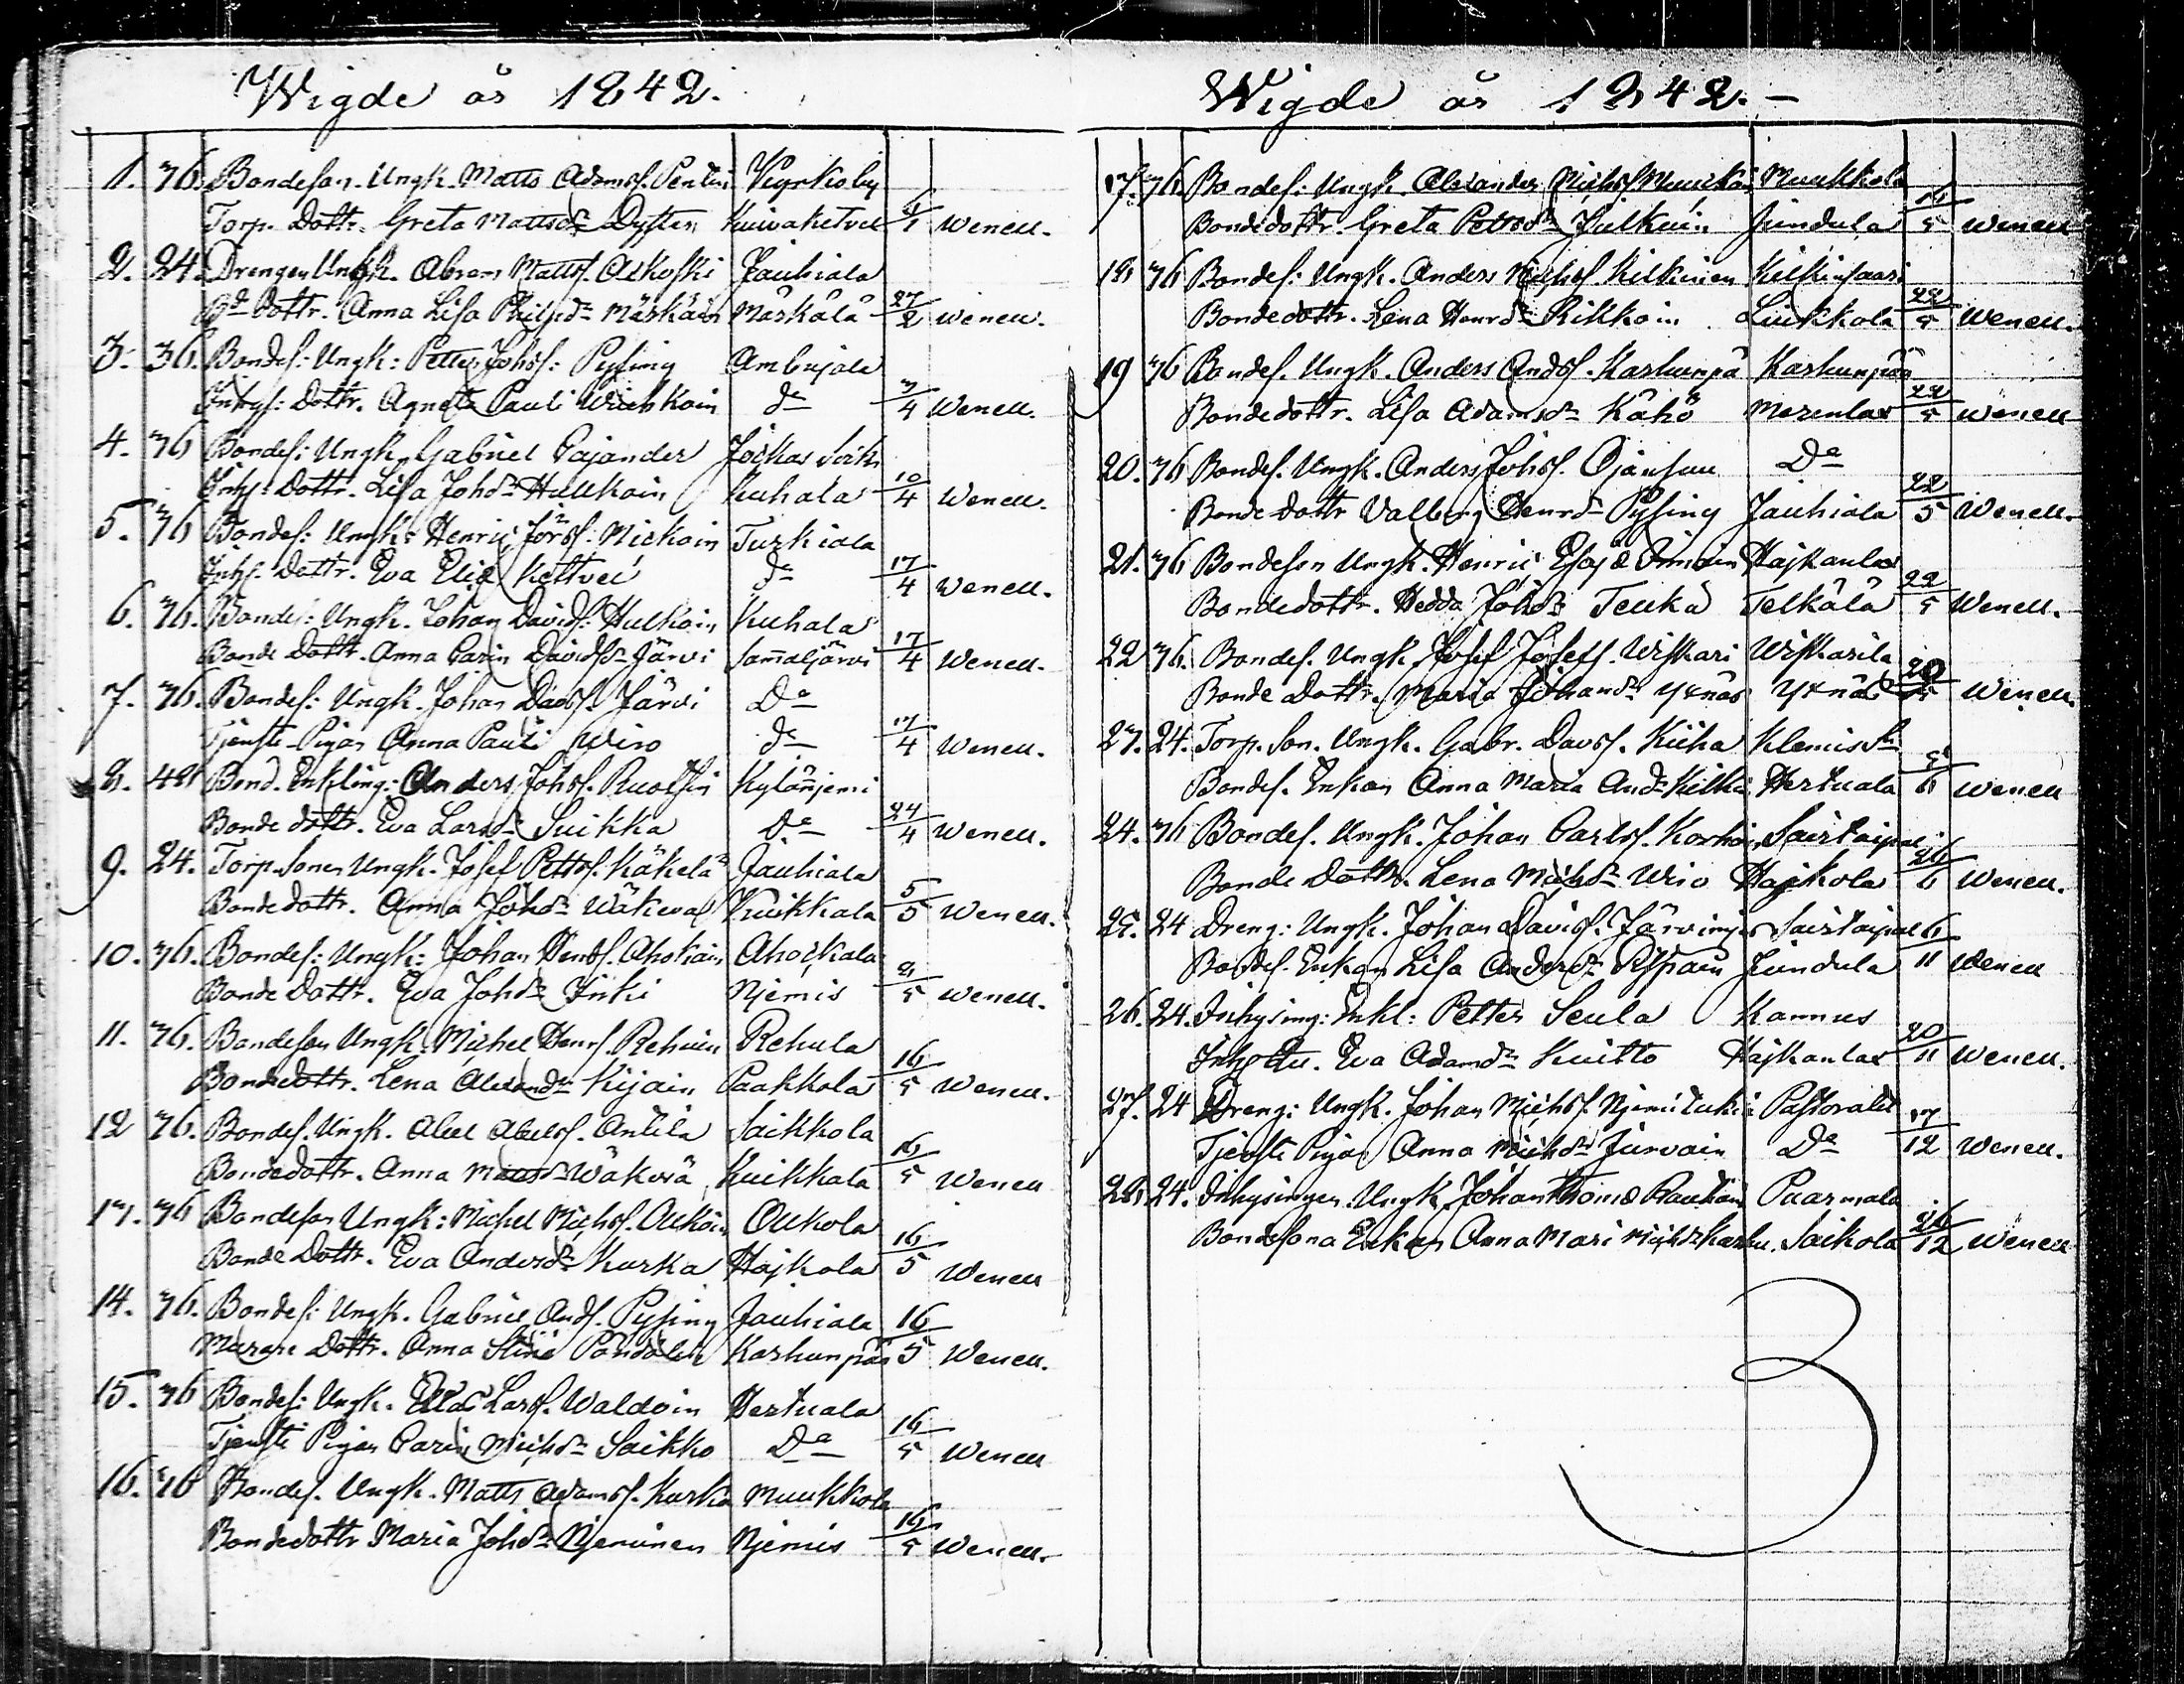 Wigde år 1842.
1. 36. Bondeson. Ungk. Matts Adamsf. Pentin Kyrkoby
Torp. Dottr. Greta Mattsdr Dyster Kuivaketvel Wenell.
2. 24. Drengen Ungk. Abram Mattsf. Askofki Jauhiala
Dottr. Anna Lisa Philpdr Märkäin Märkälä 27/2 Wenell.
3. 36. Bondes: Ungk: Petter Johsf: Pysing Ambujala
Inhys: Dottr. Agneta Pauli Wichkain do 3/4 Wenell.
4. 36 Bondes: Ungk. Gabriel Pajander
Inhs: Dottr. Lisa Johdr Hulkoin Kuhala 10/4 Wenell.
5. 36 Bondes: Ungk: Henric Jörsf. Mickoin Turkiala
Inhs. Dottr. Eva Elia Kettvel do 17/4 Wenell.
6. 36. Bondes: Ungk. Johan Davidsf. Hulkoin Kuhala
Bonde Dottr. Anna Carin Davidsdr Järvi Samaljärvi 17/4 Wenell.
7. 36. Bondes: Ungk. Johan Davsf. Järvi Do
Tjenste-Pigan Anna Pauli Wiro do 17/4 Wenell.
8. 48 Bond. Enkling: Anders Johsf. Ruolsin Kylänjemi
Bonde dottr. Eva Larsdr Suikka Do 24/4 Wenell.
9. 24. Torp. Sonen Ungk. Josef Pettsf. Käkelä Jauhiala
Bondedottr. Anna Johdr Wäkevä Kuikkala 5/5 Wenell.
10. 36. Bondes: Ungk: Johan Hendsf. Ahokain Ahokkala
Bonde Dottr. Eva Johdr Inki Njemis 8/5 Wenell.
11. 36. Bondeson Ungk. Michel Henrsf. Rehuin Rehula
Bondedottr. Lena Alexandr Kijain Paakkola 16/5 Wenell.
12 36. Bondes. Ungk. Abel Abelsf. Antila Saikkola
Bondedottr. Anna Mattsdr Wäkevä Kuikkala 16/5 Wenell
13. 36 Bondeson Ungk: Michel Michsf. Olkoin Olkola
Bonde Dottr. Eva Andersdr Kurka Hajkola 16/5 Wenell
14. 36. Bondes: Ungk. Gabriel Andsf. Pysing Jauhiala 16
Murare Dottr. Anna Stina Karhunpää 5 Wenell.
15. 36 Bondes: Ungk. Elias Larsf. Waldoin Hertuala
Tjenste Pigan Carin Michdr Saikko Do 16/5 Wenell
16. 36 Bondes. Ungk. Matts Adamsf. Kurka Muukkola
Bondedottr Maria Johdr Njeminen Njemis 16/5 Wenell.
Wigde år 1842.-
17. 36. Bondes: Ungk. Alexander Michsf Muukkoin Muukkola
Bondedottr. Greta Petrsdr Julkuin Jundula 16/5 Wenell
18 36 Bondes: Ungk. Anders Michsf Kilkinen Kilkinsaari
Bondedottr. Lena Henrdr Rikkoin Liukkola 22/5 Wenell.
19 36 Bondes. Ungk. Anders Andsf. Karhunpä Karhunpää
Bondedottr. Lisa Adamsdr Kähö Merenlax 22/5 Wenell
20. 36 Bondes. Ungk. Anders Johsf. Ojansuu Do
Bonde dottr Valborg Henrdr Pysing Jauhiala 22/5 Wenell.
21. 36 Bondeson Ungk. Henric Hajkanlax
Bondedottr. Hedda Johdr Teuka Telkälä 22/5 Wenell.
22 36. Bondes. Ungk. Josef Josefs. Wiskari Wiskarila
Bonde Dottr. Maria Johandr Yxnäs Yxnäs Wenell.
23. 24. Torp. Son. Ungk. Gabr. Davsf. Kiiha
Bondes. Enkan Anna Maria Anddr Kilki Hertuala 6 Wenell
24. 36 Bondes. Ungk. Johan Carlsf. Korhoin Savitaipal
Bonde Dottr. Lena Michdr Wiro Hajkola 26/6 Wenell.
25. 24 Dreng: Ungk. Johan Davidsf. Järvinen Savitaipal 6
Bondes. Enkan Lisa Andersdr Jundula 11 Wenell
26. 24. Inhysing: Enkl: Petter Seula Kannus
Inhs Dtr. Eva Adamdr Kuitto Hajkanlax 20/11 Wenell.
27. 24 Dreng: Ungk. Johan Michsf. Pastoralet
Tjenste Pigan Anna Michdr Jurvain Do 17/12 Wenell.
28. 24. Inhysingen Ungk. Johan Thoms Raukäin Paarmala
Bondesona Enkan Anna Mari Michdr Karhu Saikola 26/12 Wenell
3